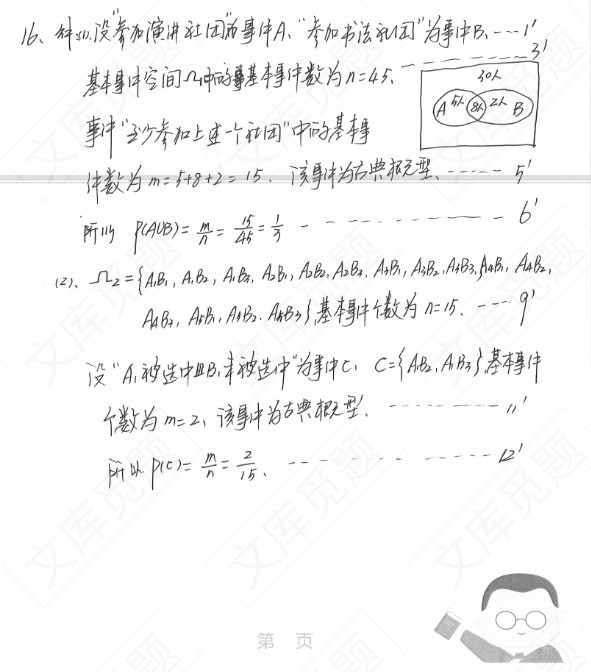 16、解(1).设"参加演讲社团"为事件A、"参加书法社团"为事件B、---1'
基本事件空间Ω中的基本事件数为n=45、------3'
30人
A 5人 8人 2人 B
事件"至少参加上述一个社团"中的基本事
件数为m=5+8+2=15、该事件为古典概型、-----5'
所以 P(A∪B)=m/n=15/45=1/3 ---------6'
(2)、Ω2={A1B1,A1B2,A1B3,A2B1,A2B2,A2B3,A3B1,A3B2,A3B3,A4B1,A4B2,
A4B3,A5B1,A5B2,A5B3}基本事件个数为n=15、---9'
设"A1被选中且B1未被选中"为事件C, C={A1B2,A1B3}基本事件
个数为m=2、该事件为古典概型、---------11'
所以P(C)=m/n=2/15、------------12'
第 页
文库觅题